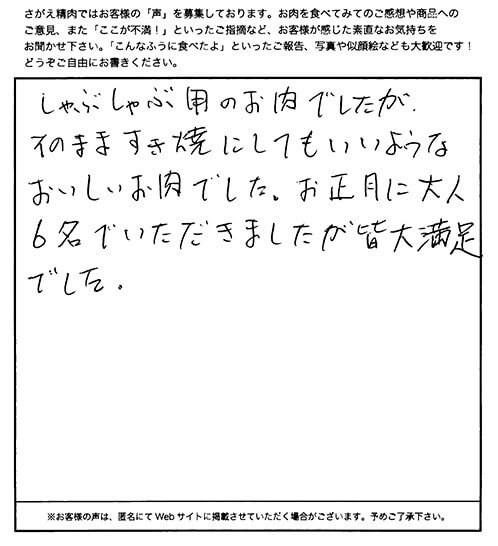 さがえ精肉ではお客様の「声」を募集しております。お肉を食べてみてのご感想や商品への
ご意見、また「ここが不満!」といったご指摘など、お客様が感じた素直なお気持ちを
お聞かせ下さい。「こんなふうに食べたよ」といったご報告、写真や似顔絵なども大歓迎です!
どうぞご自由にお書きください。
しゃぶしゃぶ用のお肉でしたが、
そのまますき焼にしてもいいような
おいしいお肉でした。お正月に大人
6名でいただきましたが皆大満足
でした。
※お客様の声は、匿名にてWebサイトに掲載させていただく場合がございます。予めご了承下さい。